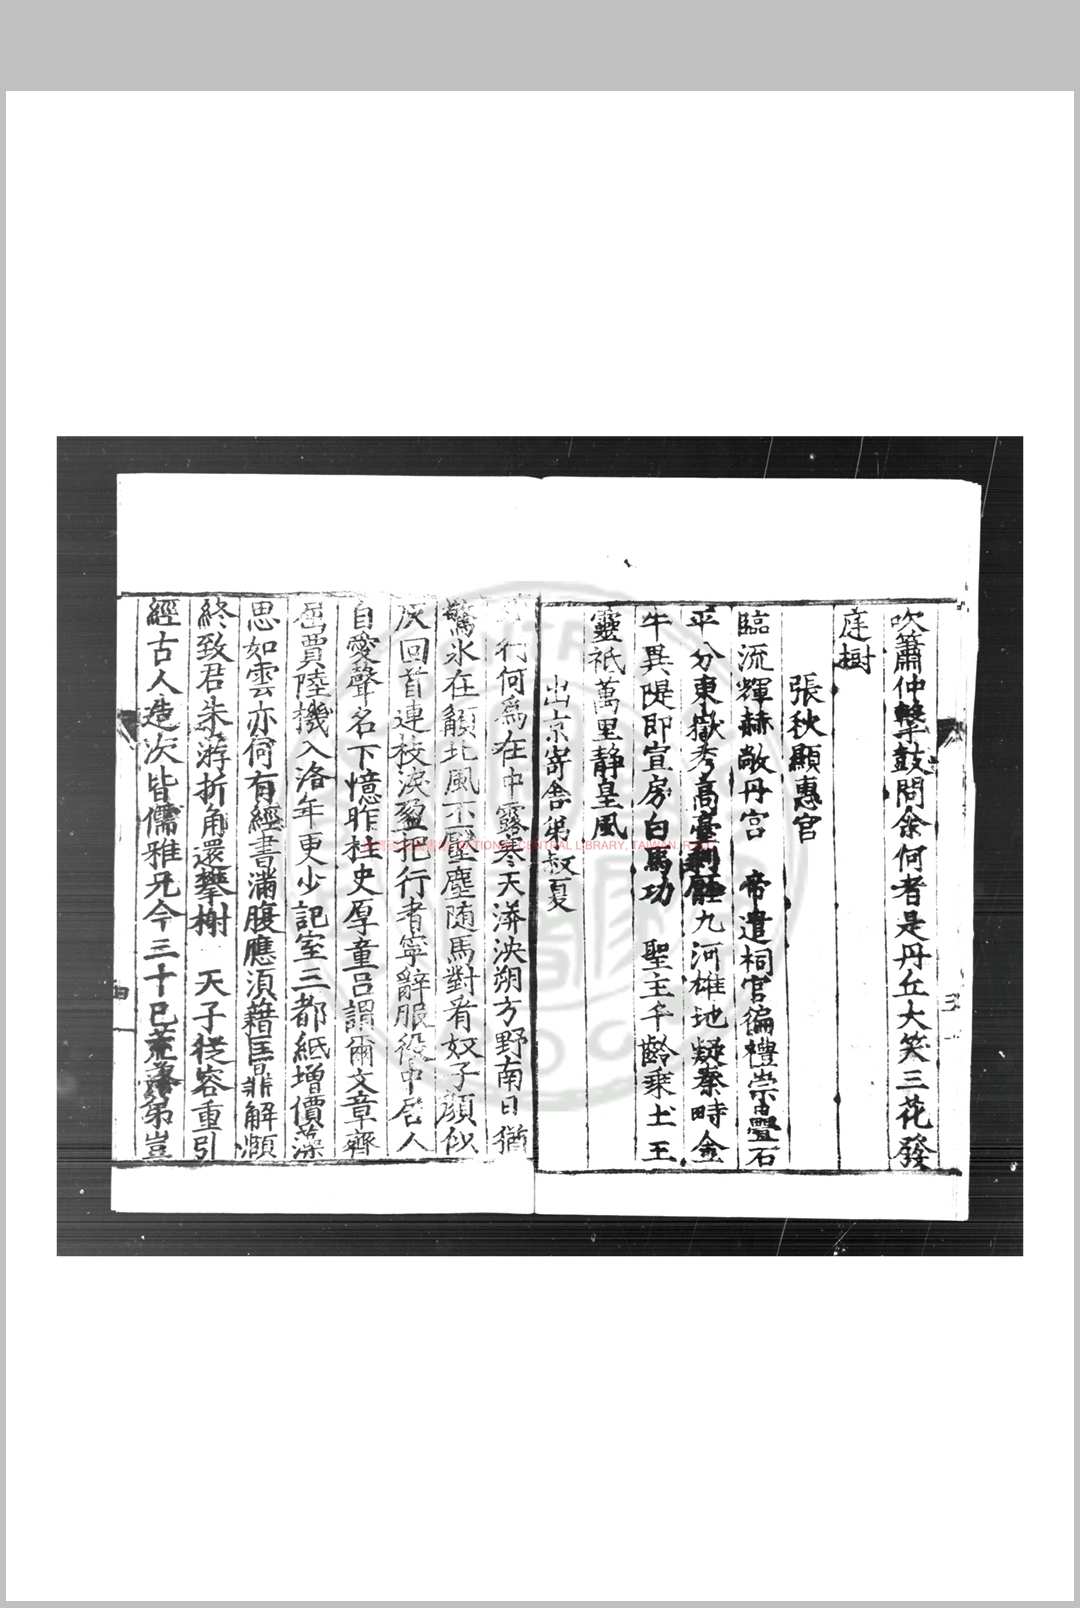 吹簫仲擊鼓問余何者是丹丘大笑三花發
庭樹
張秋顯惠宮
臨流輝赫敞丹宮 帝遣祠官徧禮崇疊石
平分東嶽秀高臺利壓九河雄地疑秦畤金
牛異隄即宣房白馬功 聖主千齡乘土王
靈祗萬里静皇風
出京寄舍弟叔夏
行何爲在中露寒天漭泱朔方野南日猶
驚氷在鬚北風不壓塵随馬對看奴子顔似
灰回首連枝淚盈把行者寧辭服役中居人
自愛聲名下憶昨柱史厚童吕謂爾文章齊
屈賈陸機入洛年更少記室三都紙增價藻
思如雲亦何有經書滿腹應須藉匡鼎解頥
終致君朱游折角還攀檻 天子從容重引
經古人造次皆儒雅兄今三十已荒落第豈
三
四
NATIONAL CENTRAL LIBRARY, TAIWAN